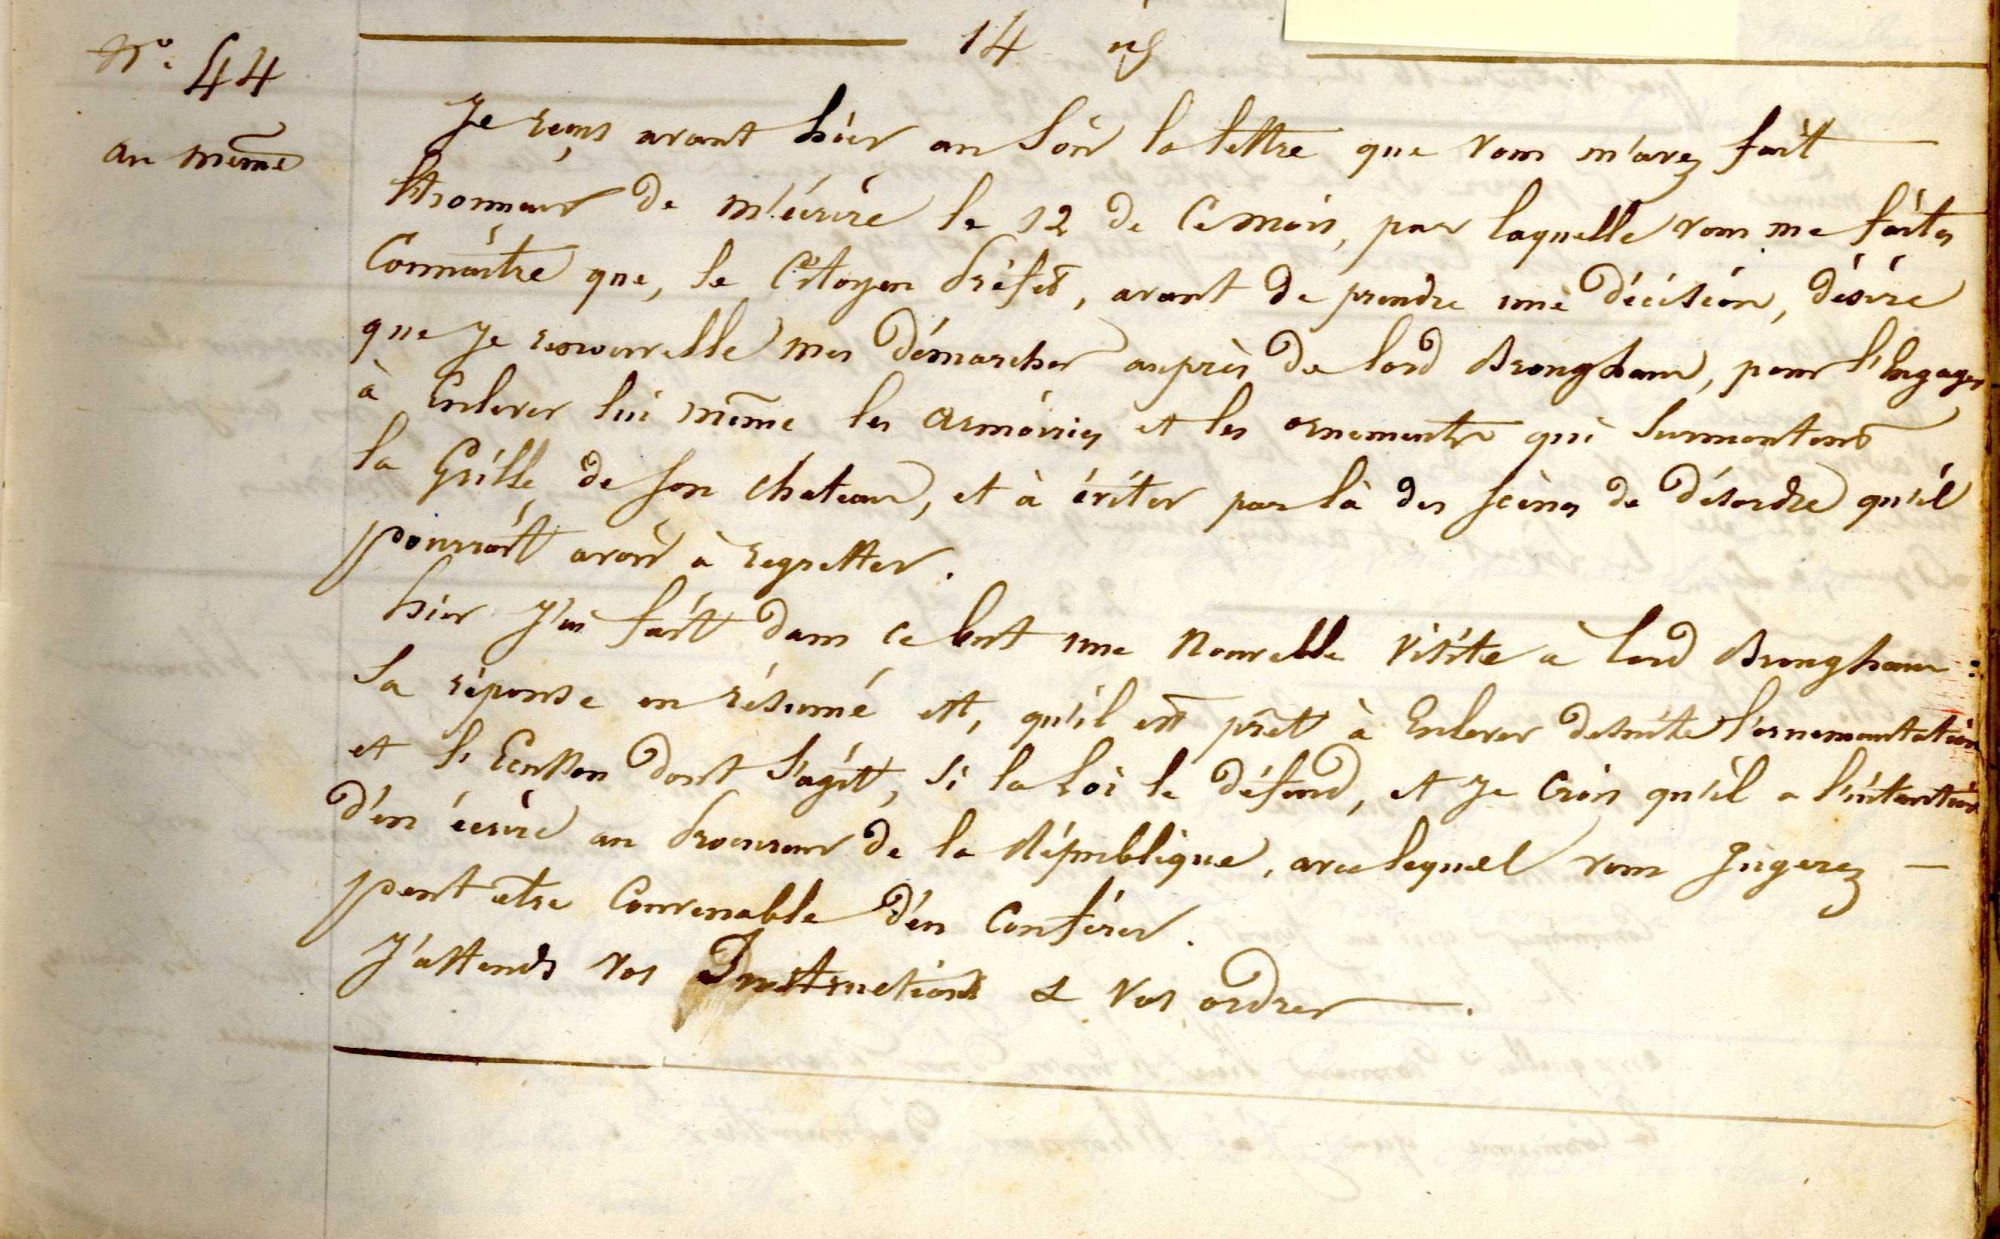 14 dº
Nº 44
au même
Je reçus avant hier au Soir la lettre que vous m'avez fait
l'honneur de m'écrire le 12 de ce mois, par laquelle vous me faites
Connaître que, le Citoyen Préfet, avant de prendre une décision, désire
que je renouvelle mes démarches auprès de lord Brougham, pour l'Engager
à Enlever lui même les armoiries et les ornements qui Surmontent
la Grille de Son chateau, et à éviter par là des Scènes de désordre qu'il
pourrait avoir à regretter.
hier J'ai fait dans ce but une Nouvelle Visite à Lord Brougham :
Sa réponse en résumé est, qu'il est prêt à Enlever desuite l'ornementation
et l'Ecusson dont S'agit, Si la Loi le défend, et Je Crois qu'il a l'intention
d'en écrire au Procureur de la République, avec lequel vous Jugerez
peut etre Convenable d'en Conférer.
J'attends vos Instructions & vos ordres.